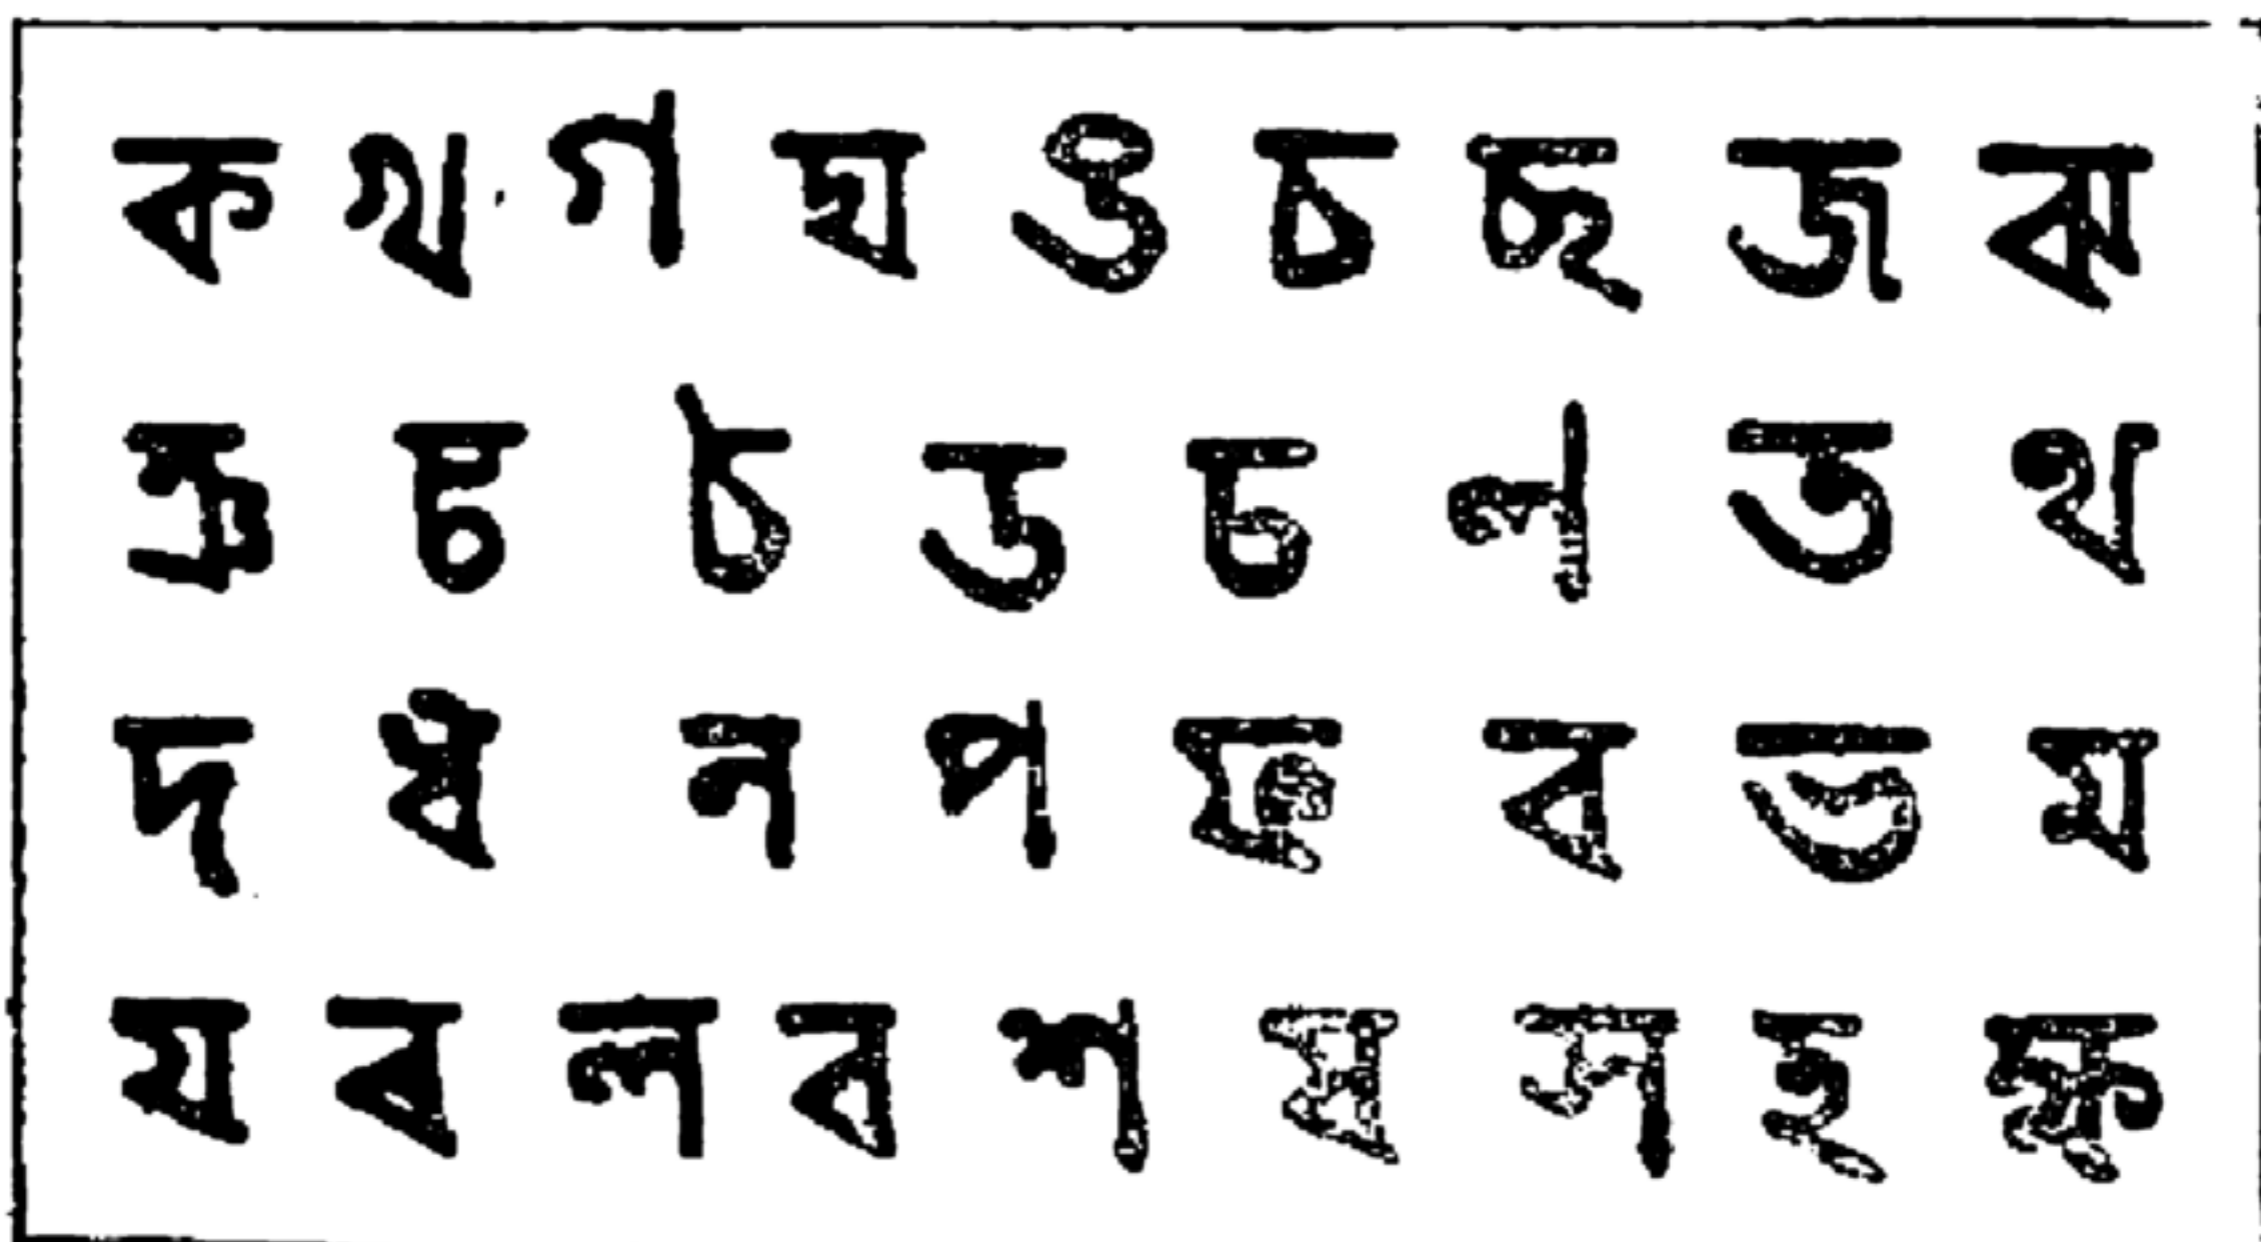 ক খ গ ঘ ঙ চ ছ জ ঝ
ঞ ট ঠ ড ঢ ণ ত থ
দ ধ ন প ফ ব ভ ম
য ৰ ল ব শ ষ স হ ক্ষ